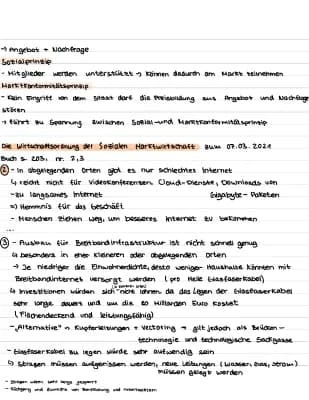 → Angebot + Nachfrage
Sozialprinzip
- Mitglieder werden unterstützt → können dadurch am Markt teilnehmen
Marktkonformitätsprinzip
- Kein Eingriff von dem Staat darf die Preisbildung aus Angebot und Nachfrage
stören
→ führt zu Spannung zwischen Sozial- und Marktkonformitätsprinzip
Die Wirtschaftsordnung der Sozialen Marktwirtschaft zum 07.03.2021
Buch S. 203, nr. 2,3
② - In abgelegenden Orten gibt es nur schlechtes Internet
↳ reicht nicht für Videokonferenzen, Cloud-Dienste, Downloads von
- zu langsames Internet Gigabyte-Paketen
=> Hemmnis für das Geschäft
- Menschen ziehen weg, um besseres Internet zu bekommen
...
③ - Ausbau für Breitbandinfrastruktur ist nicht schnell genug
↳ besonders in eher kleineren oder abgelegenden Orten
→ Je niedriger die Einwohnerdichte, desto weniger Haushalte könnten mit
Breitbandinternet versorgt werden (pro Meile Glasfaserkabel)
↳ Investitionen würden sich nicht lohnen, da das Legen der Glasfaserkabel
sehr lange dauert und um die 80 Milliarden Euro kostet
(Flächendeckend und leistungsfähig)
- „Alternative" = Kupferleitungen + Vectoring → gilt jedoch als Brücken-
technologie und technologische Sackgasse
- Glasfaserkabel zu legen würde sehr aufwendig sein
↳ Straßen müssen aufgerissen werden, neue Leitungen (Wasser, Gas, Strom)
müssen gelegt werden
- Straßen wären sehr lange gesperrt